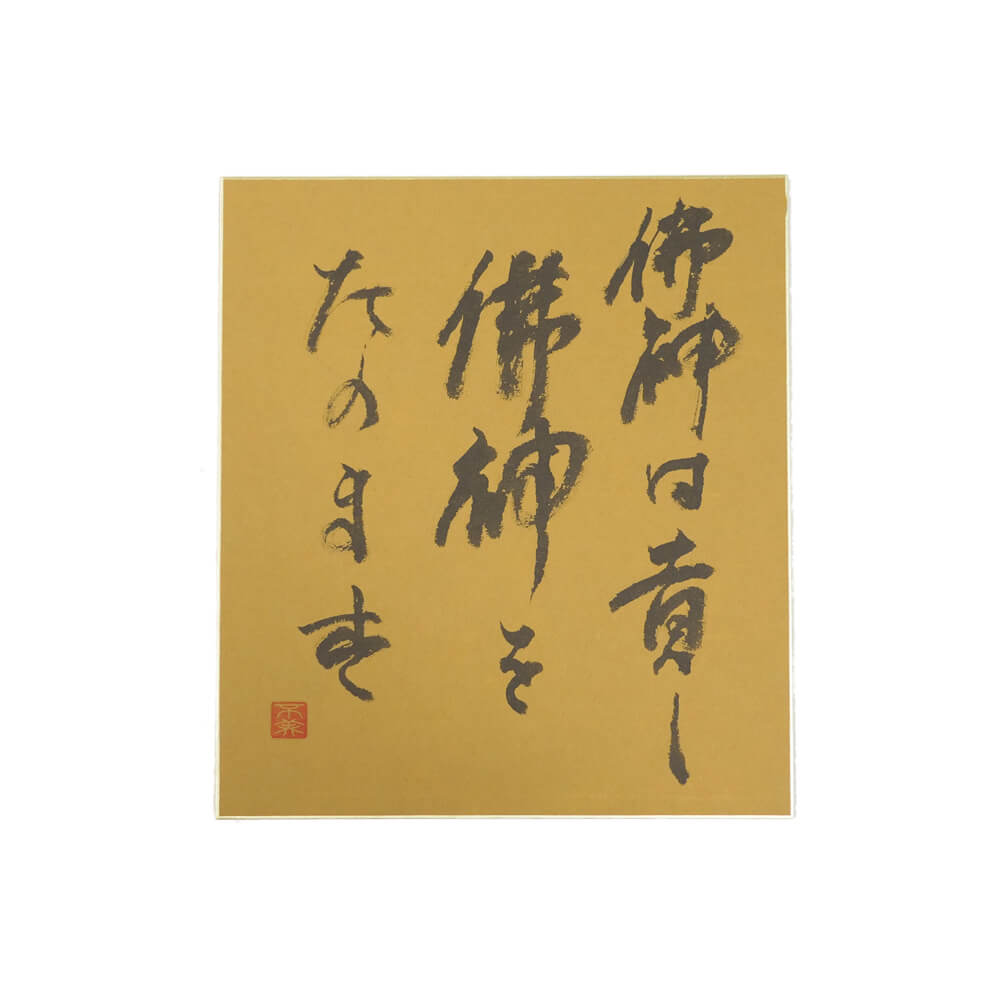 佛神は貴し
佛神を
たのまず